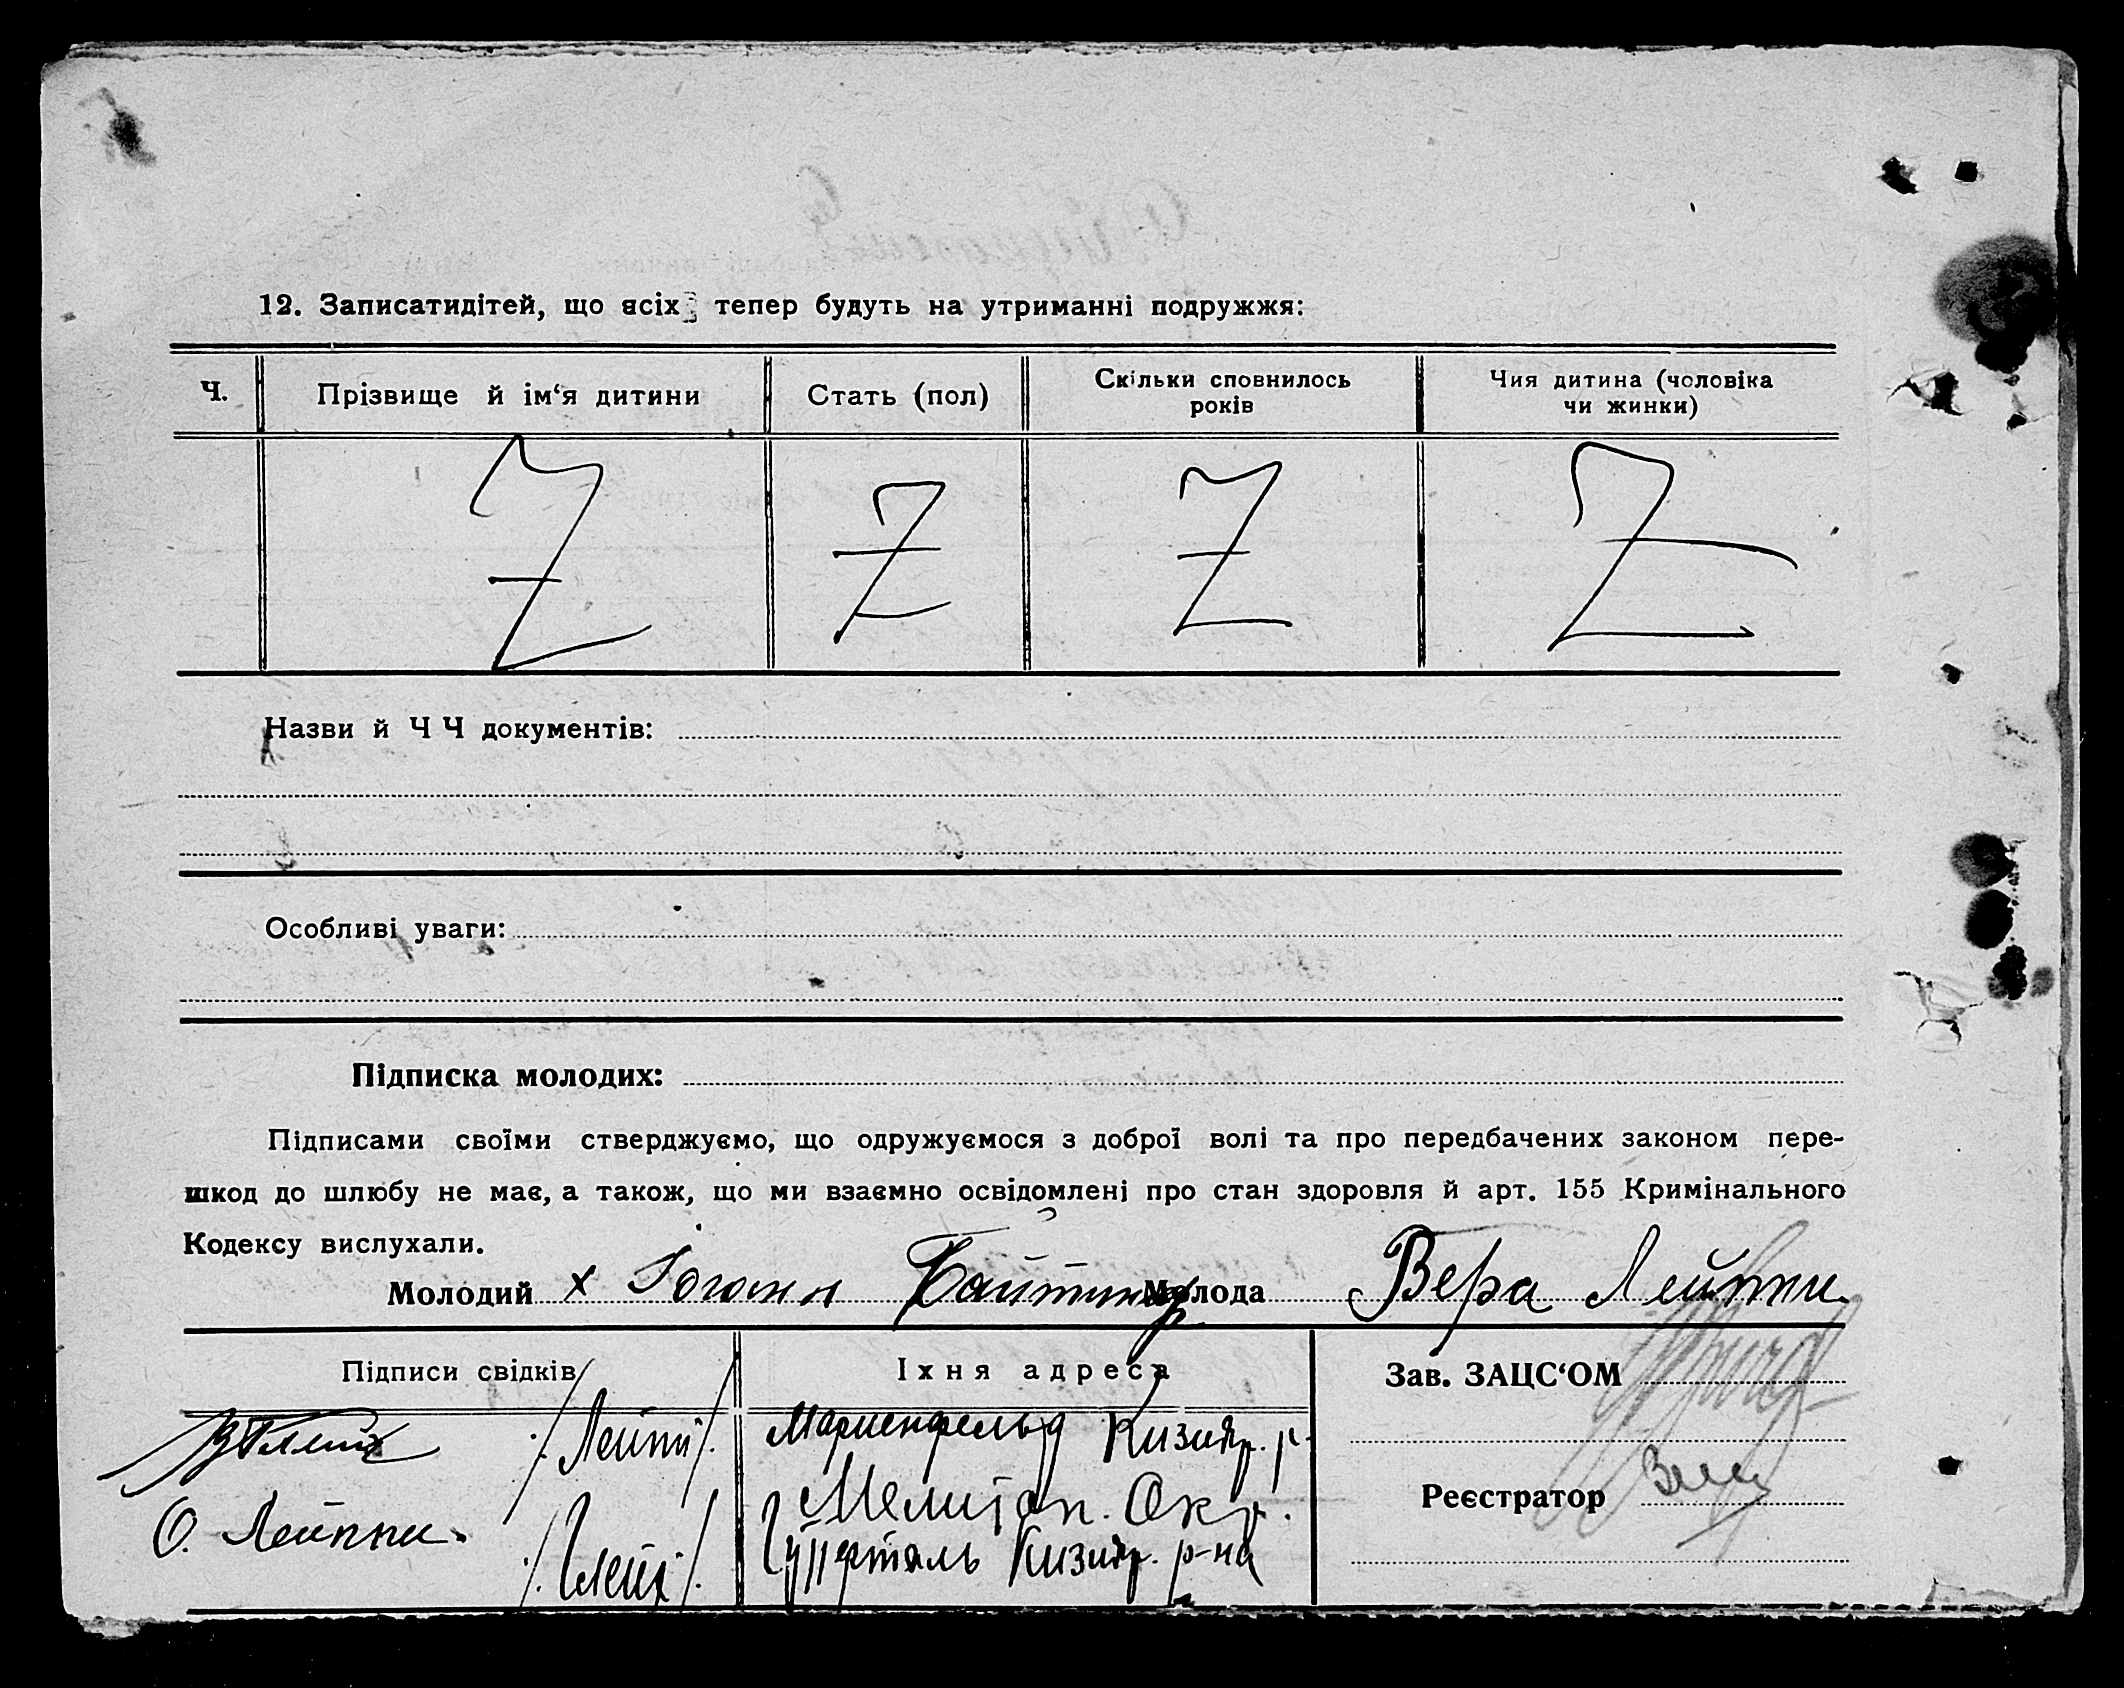 12. Записатидітей, що всіх тепер будуть на утриманні подружжя:
Ч. Прізвище й ім‘я дитини Стать (пол) Скільки сповнилось років Чия дитина (чоловіка чи жинки)
Z Z Z Z
Назви й Ч Ч документів:
Особливі уваги:
Підписка молодих:
Підписами своїми стверджуємо, що одружуємося з доброї волі та про передбачених законом пере-
шкод до шлюбу не має, а також, що ми взаємно освідомлені про стан здоровля й арт. 155 Кримінального
Кодексу вислухали.
Молодий х Іоганн Байтингер Молода Вера Лейппи
Підписи свідків Їхня адреса Зав. ЗАЦС‘ОМ
/Лейпи/. Мариенфельд Кизияр. р-
Мелитоп. Окр.
Реєстратор
О. Лейппи. Гуперталь Кизияр. р-на